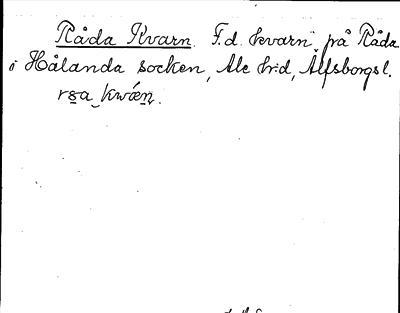 Råda Kvarn. F.d. kvarn på Råda
i Hålanda socken, Ale hrd, Älfsborgs l.